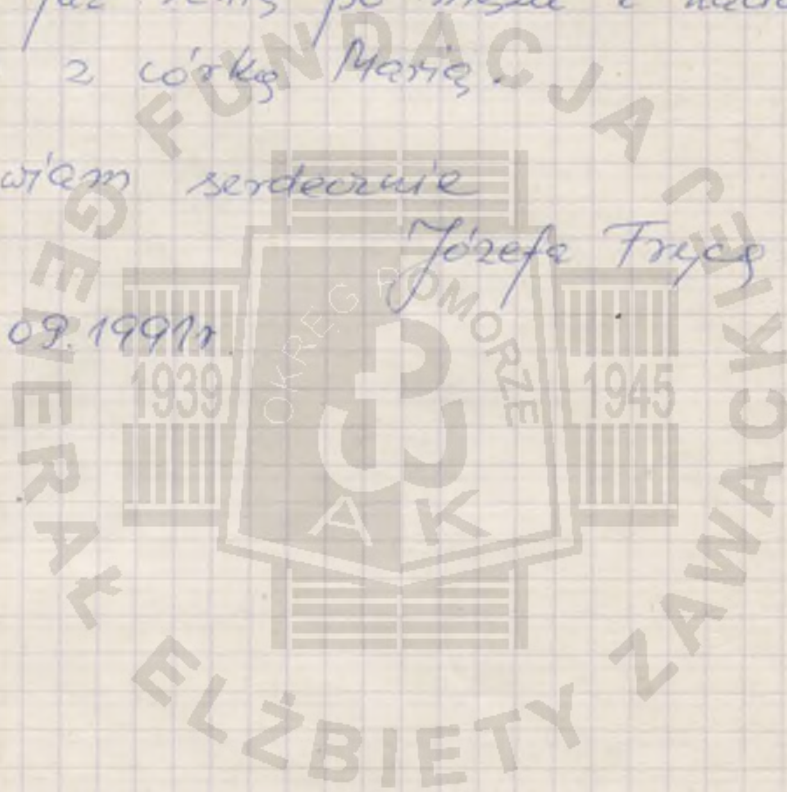 już
z córką Marią.
wiam serdecznie
Józefa Frycą
09.1991r.
FUNDACJA GENERAŁ ELŻBIETY ZAWACKIEJ
OKRĘG POMORZE
1939
1945
AK